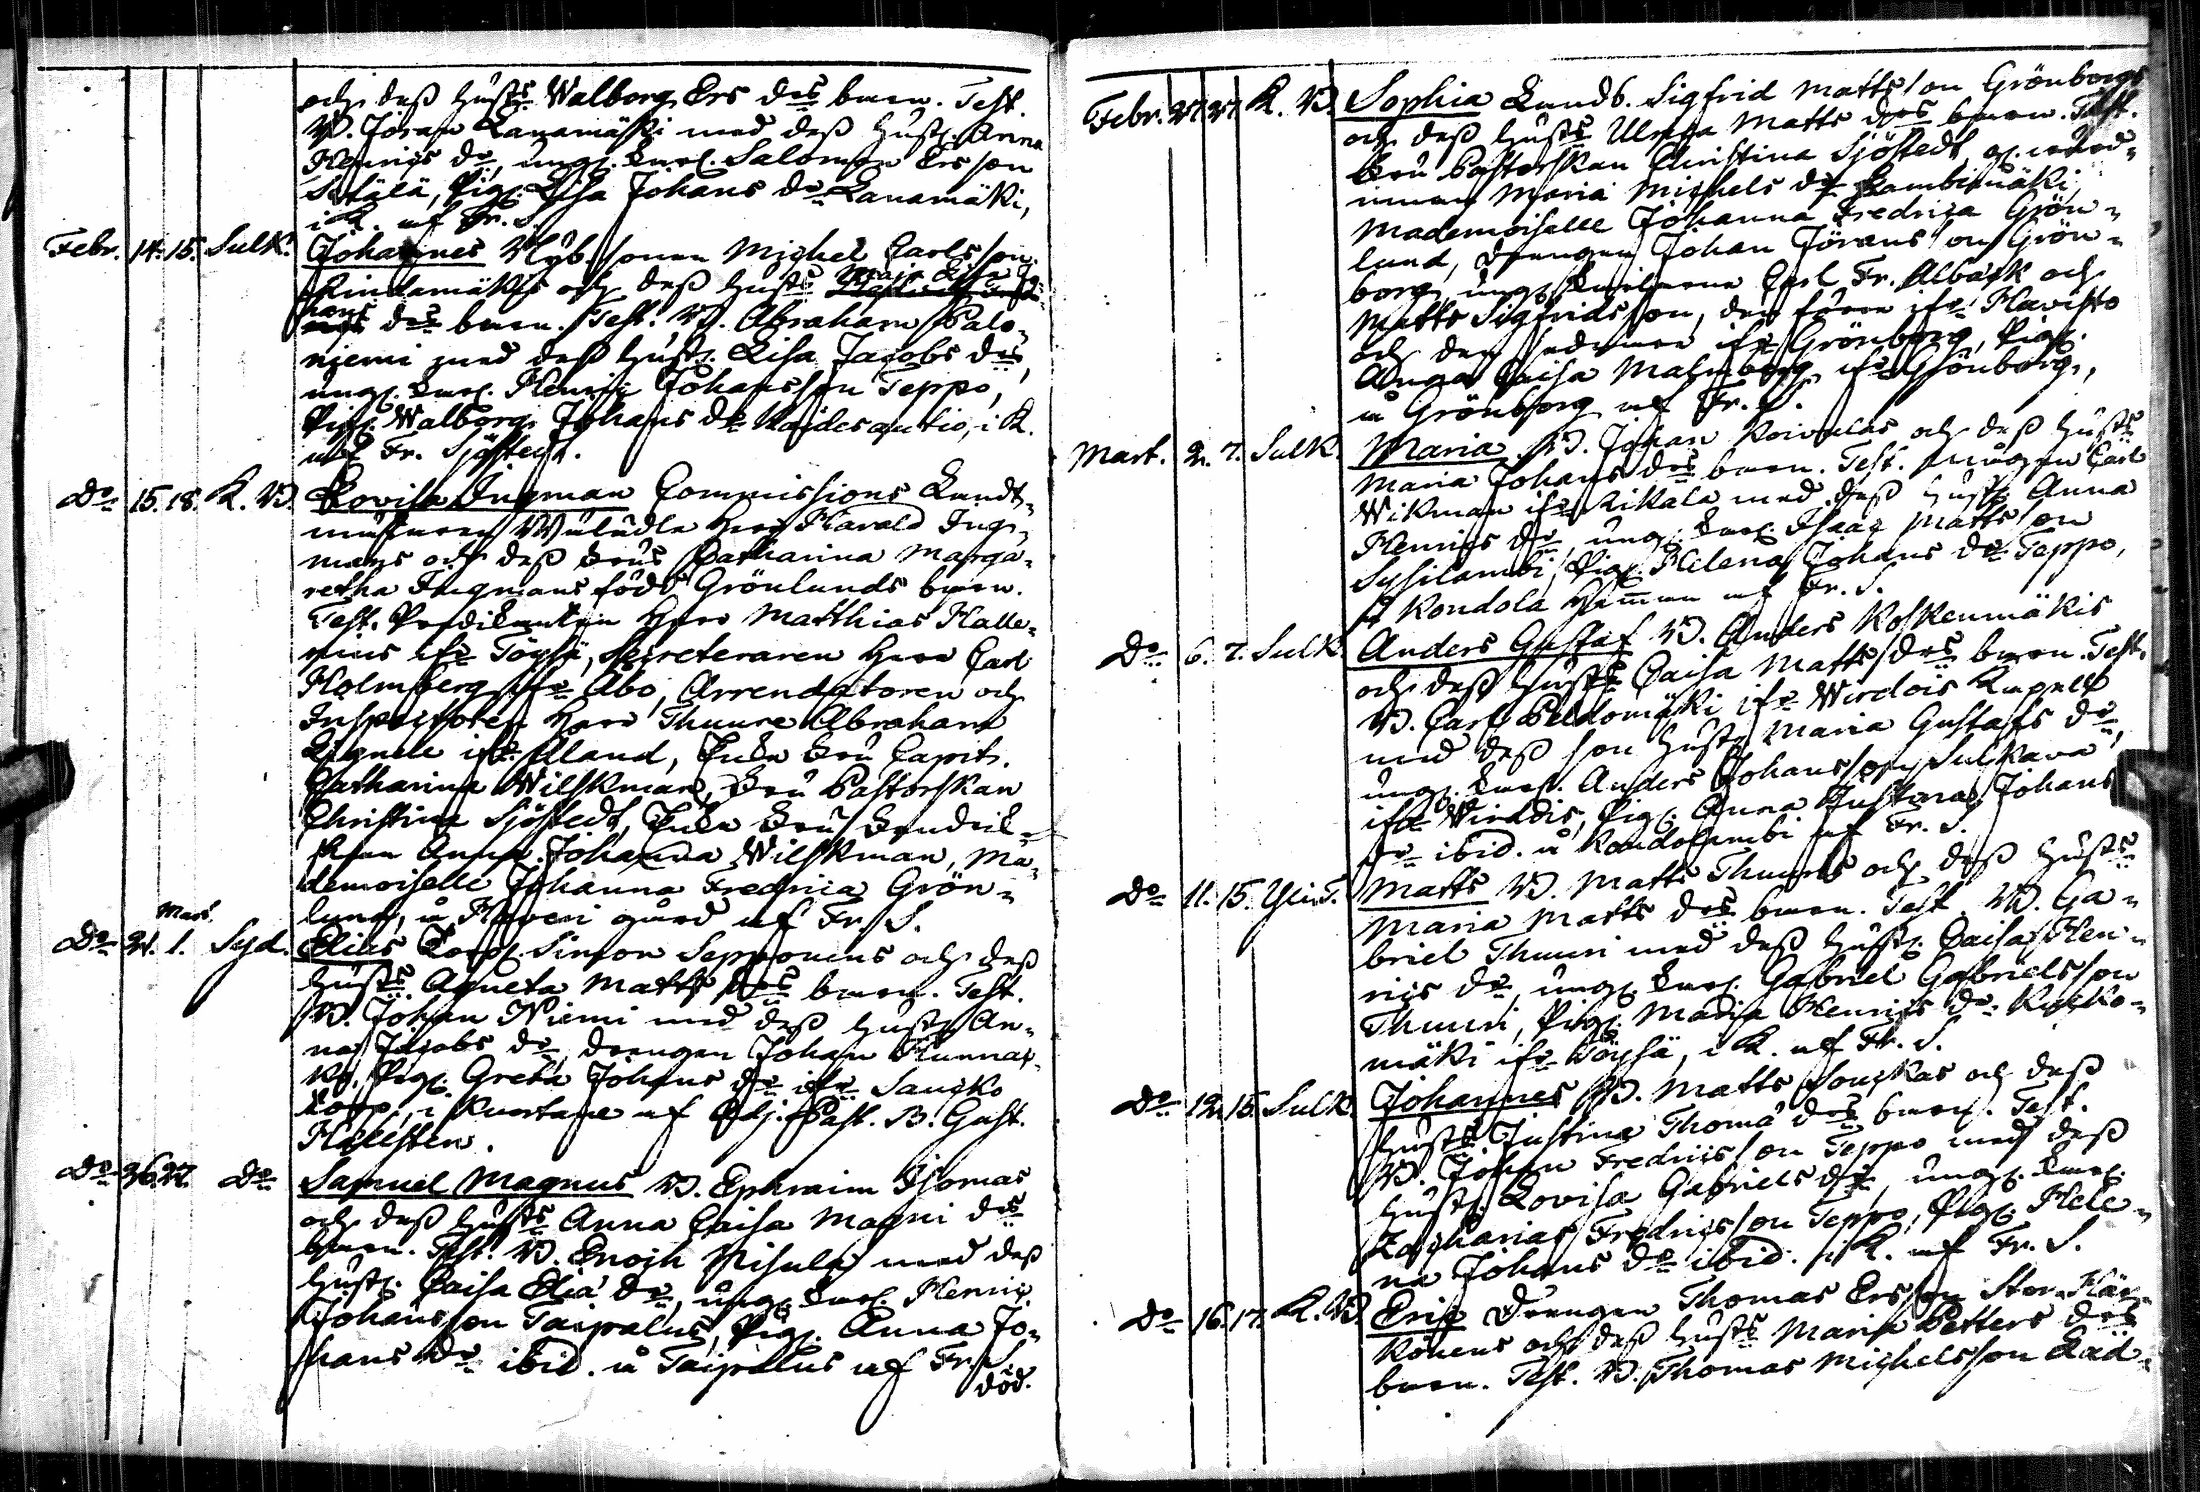 och dess hustrs Walborg Ers drs barn. Test.
B. Jöran Lanamäki med dess hustr. Anna
Henrics dr, ungk. Salomon Ersson
Lisa Johans dr Lanamäki,
i K. af Fr. S.
Febr. 14. 15. Sulk. Johannes Nyb. sonen Michel Carlsson
Rindamäkis och dess hustrs Maja Lisa Jo-
hans drs barn. Test. B. Abraham Palo-
niemi med dess hustr. Lisa Jacobs dr,
ungk. Henric Johansson Teppo,
Pig. Walborg Johans dr Kaidesautio, i K.
af Fr. Sjöstedt.
Do 15. 18. K. B. Lovisa Ingman Commissions Landt-
mätaren Wäladle Herr Harald Ing-
mans och dess Frus Catharina Marga-
retha Ingmans född Grönlunds barn.
Test. Predikanten Herr Matthias Halle-
nius ifr Töysä, Secreteraren Herr Carl
Holmberg ifr Åbo, Arrendatoren och
Inspectoren Herr Thuure Abraham
Lignell ifr Åland, Enke Fru Capit.
Catharina Wilskman, Fru Pastorskan
Christina Sjöstedt, Enke Fru
Anna Johanna Wilskman, Ma-
demoiselle Johanna Fredrica Grön-
lund, å Haveri gård af Fr. S.
Mart.
Do 21. 1. Syd. Elias Torp. Simon Sepponens och dess
hustrs Agneta Matts drs barn. Test.
B. Johan Niemi med dess hustr. An-
na Jacobs dr, Drengen Johan
Pig. Greta Johans dr ifr Saucko
torp, i Kuortane af Adj. Past. B. Gust.
Hällsten.
Do 26. 27. Do Samuel Magnus B. Ephraim
och dess hustrs Anna Caisa Magni drs
barn. Test. B. Enoch Risula med dess
hustr. Caisa Eliæ dr, ungk. Henric
Johansson Taipalus, Pig. Anna Jo-
hans dr ibid. å Taipalus af Fr. S.
död.
Febr. 27. 27. K. B. Sophia Landb. Sigfrid Mattsson Grönborgs
och dess hustrs Ulrica Matts drs barn. Test.
Fru Pastorskan Christina Sjöstedt,
Maria Michels dr
Mademoiselle Johanna Fredrica Grön-
lund, Drengen Johan Jöransson Grön-
borg, ungkarlarne Carl Fr. Albäck och
Matts Sigfridsson, den förre ifr Havisto
och den sednare ifr Grönborg, Pig.
Anna Caisa Malmberg ifr Grönborg,
å Grönborg af Fr. S.
Mart. 2. 7. Sulk. Maria B. Johan Koivulas och dess hustrs
Maria Johans drs barn. Test. Carl
Wikman ifr Rikala med dess hustr. Anna
Henrics dr, ungk. Isaac Mattsson
Sysilambi, Pig. Helena Johans dr Teppo,
å Kondola Hemman af Fr. S.
Do 6. 7. Sulk. Anders Gustaf B. Anders Koskenmäkis
och dess hustrs Caisa Matts drs barn. Test.
B. Carl Peldomäki ifr Wirdois Kapell
med dess son hustr Maria Gustafs dr,
ungk. Anders Johansson Sulkava
ifr Wirdois, Pig. Anna Justina Johans
dr ibid. å Kondolambi af Fr. S.
Do 11. 15. Ylis. T. Matts B. Matts Thuuris och dess hustrs
Maria Matts drs barn. Test. B. Ga-
briel Thuuri med dess hustr. Caisa Hen-
rics dr, ungk. Gabriel Gabrielsson
Thuuri, Pig. Maria Henrics dr
mäki ifr Töysä, i K. af Fr. S.
Do 12. 15. Sulk. Johannes B. Matts Louckas och dess
hustrs Justina Thomæ drs barn. Test.
B. Johan Fredricsson Teppo med dess
hustr. Lovisa Gabriels dr, ungk.
Zacharias Fredricsson Teppo, Pig. Hele-
na Johans dr ibid. i K. af Fr. S.
Do 16. 17. K. B. Eric Drengen Thomas Ersson Stor-Här-
könens och dess hustrs Maria Petters drs
barn. Test. B. Thomas Michelsson Räd-